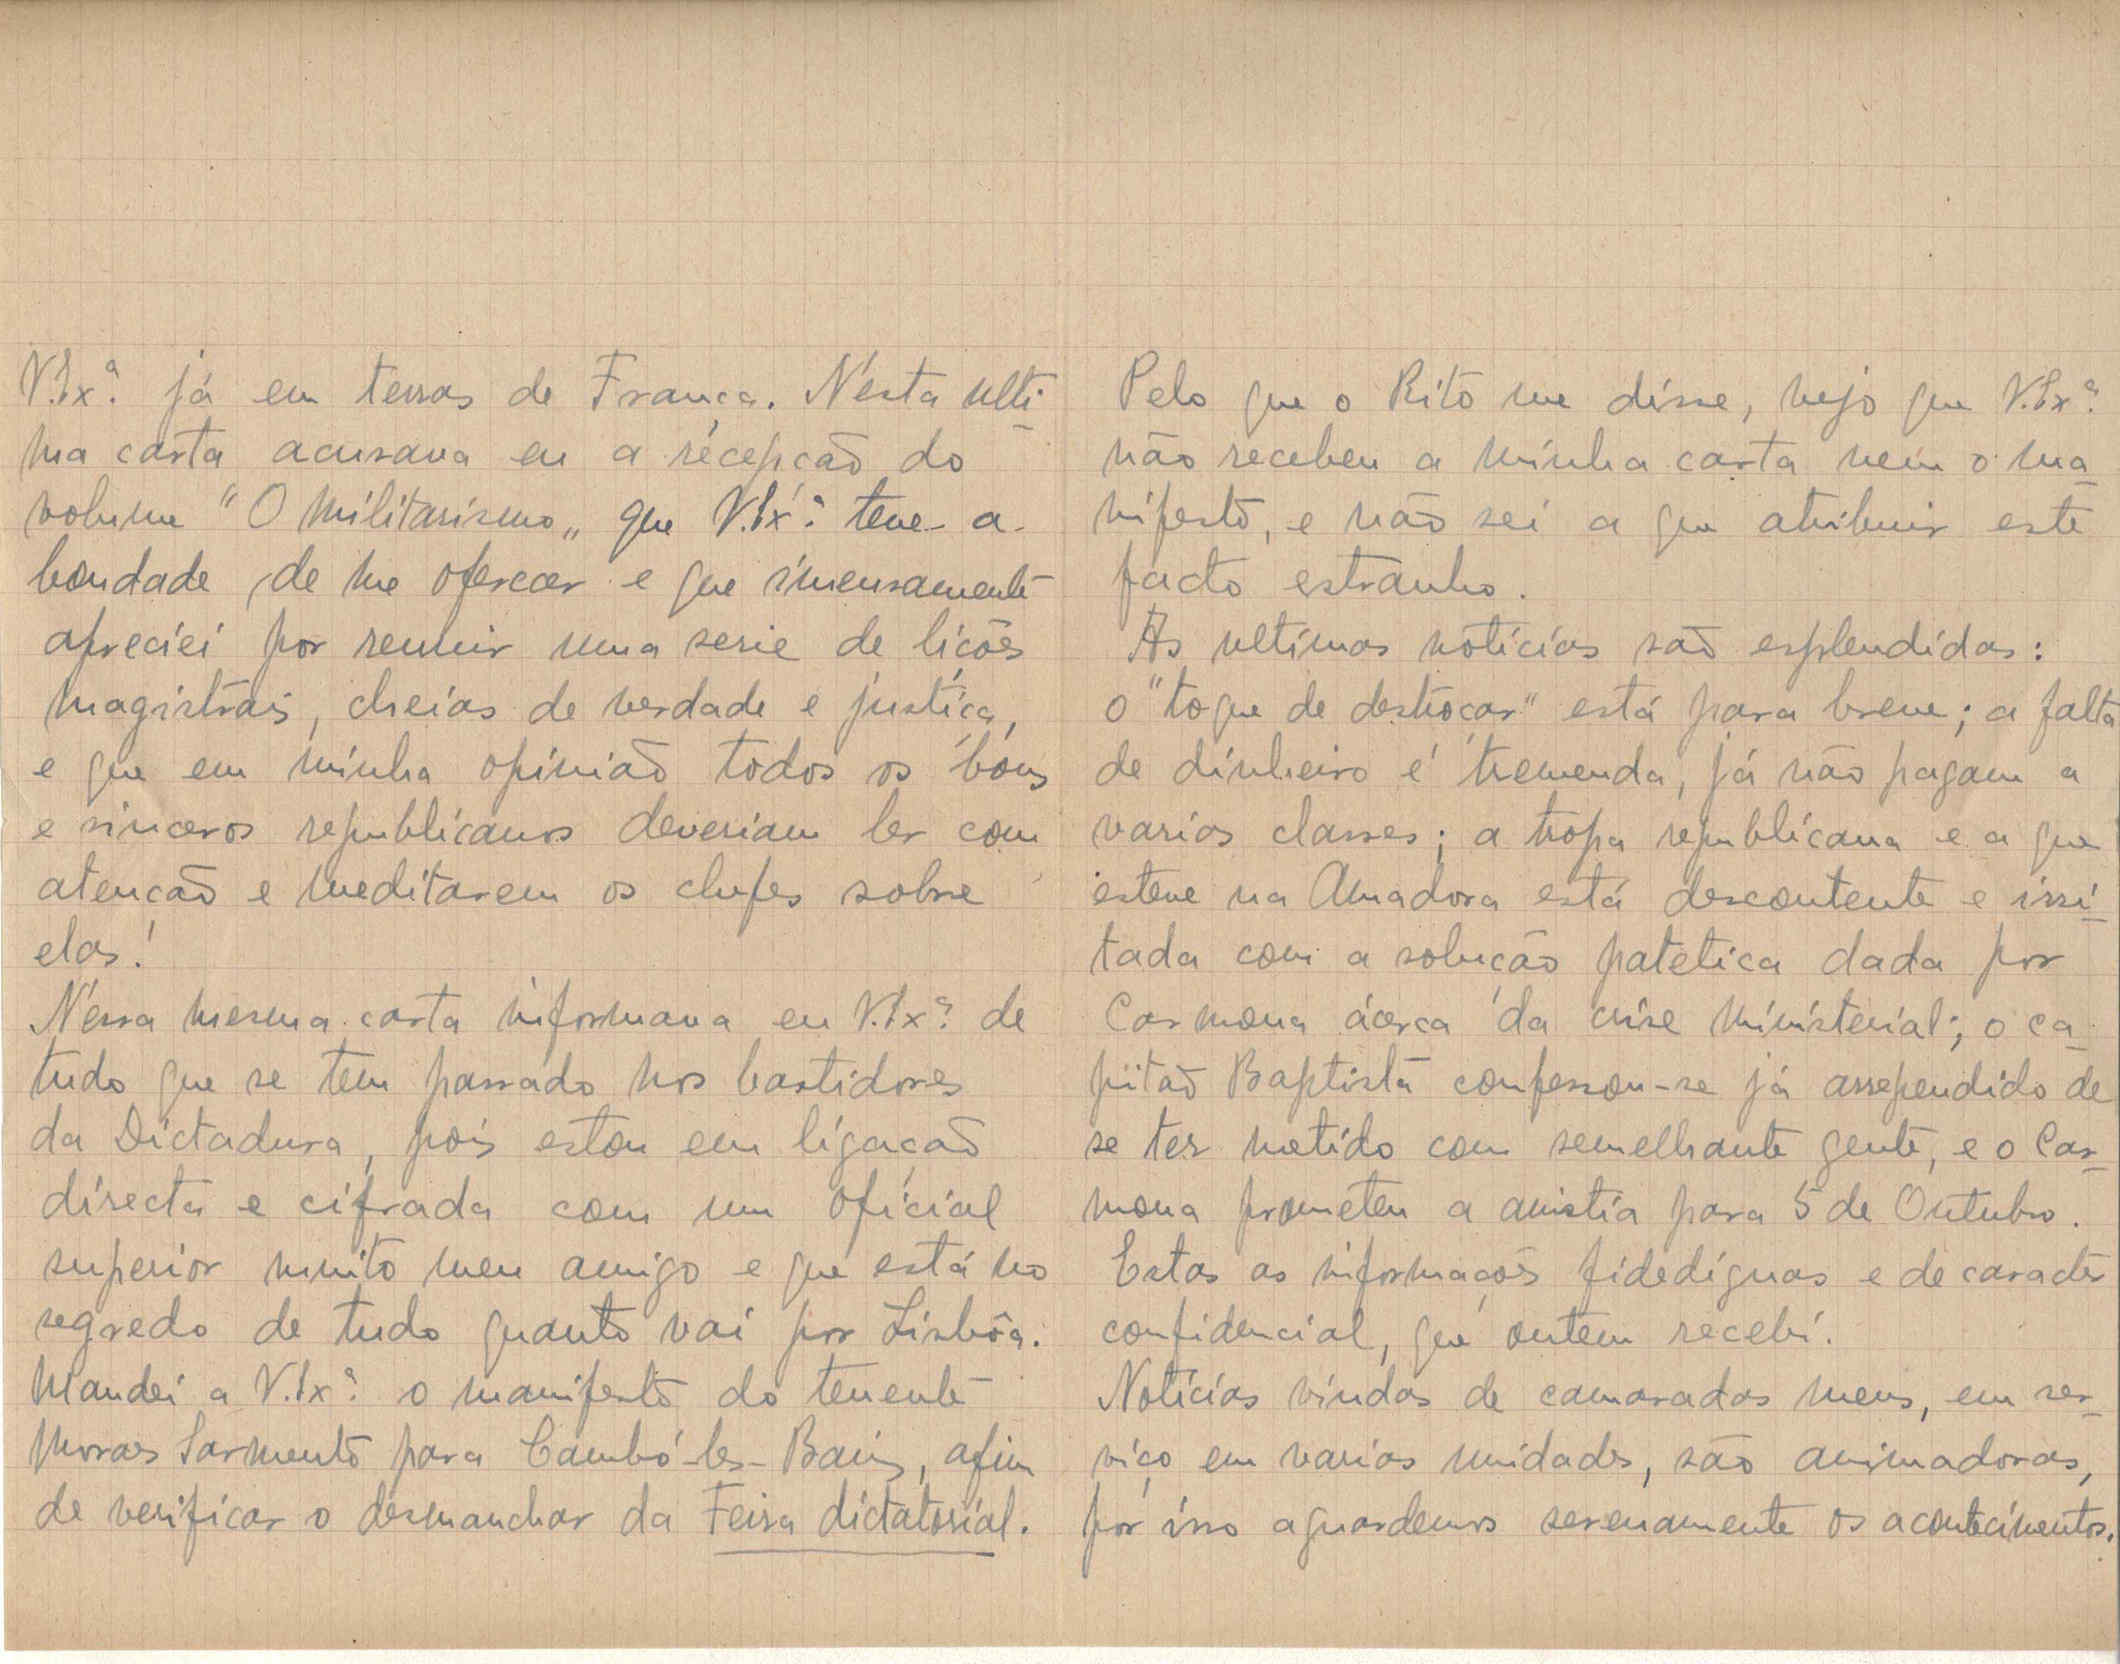 V.Exª. já em terras de França. Nésta ulti-
ma carta acusava eu a récepção do
volume "O Militarismo„ que V.Exª. teve a
bondade de me oferecer e que imensamente
apreciei por reunir uma serie de lições
magistrais, cheias de verdade e justiça,
e que em minha opinião todos os bons
e sinceros republicanos deveriam ler com
atenção e meditarem os chefes sobre
elas!
Néssa mesma carta informava eu V.Exª. de
tudo que se tem passado nos bastidores
da Dictadura, pois estou em ligação
directa e cifrada com um oficial
superior muito meu amigo e que está no
segredo de tudo quanto vai por Lisbôa.
Mandei a V.Exª. o manifesto do tenente
Moraes Sarmento para Cambó-les-Bains, afim
de verificar o desmanchar da Feira dictatorial.
Pelo que o Rito me disse, vejo que V.Exª.
não recebeu a minha carta nem o ma-
nifesto, e não sei a que atribuir este
facto estranho.
As ultimas noticias são esplendidas:
o "toque de destroçar" está para breve; a falta
de dinheiro é tremenda, já não pagam a
varias classes; a tropa republicana e a que
esteve na Amadora está descontente e irri-
tada com a solução patetica dada por
Carmona ácerca da crise ministerial; o ca-
pitão Baptista confessou-se já arrependido de
se ter metido com semelhante gente, e o Car-
mona prometeu a amistia para 5 de Outubro.
Estas as informações fidedignas e de caracter
confidencial, que ontem recebi.
Noticias vindas de camaradas meus, em ser-
viço em varias unidades, são animadoras,
por isso aguardemos serenamente os acontecimentos.